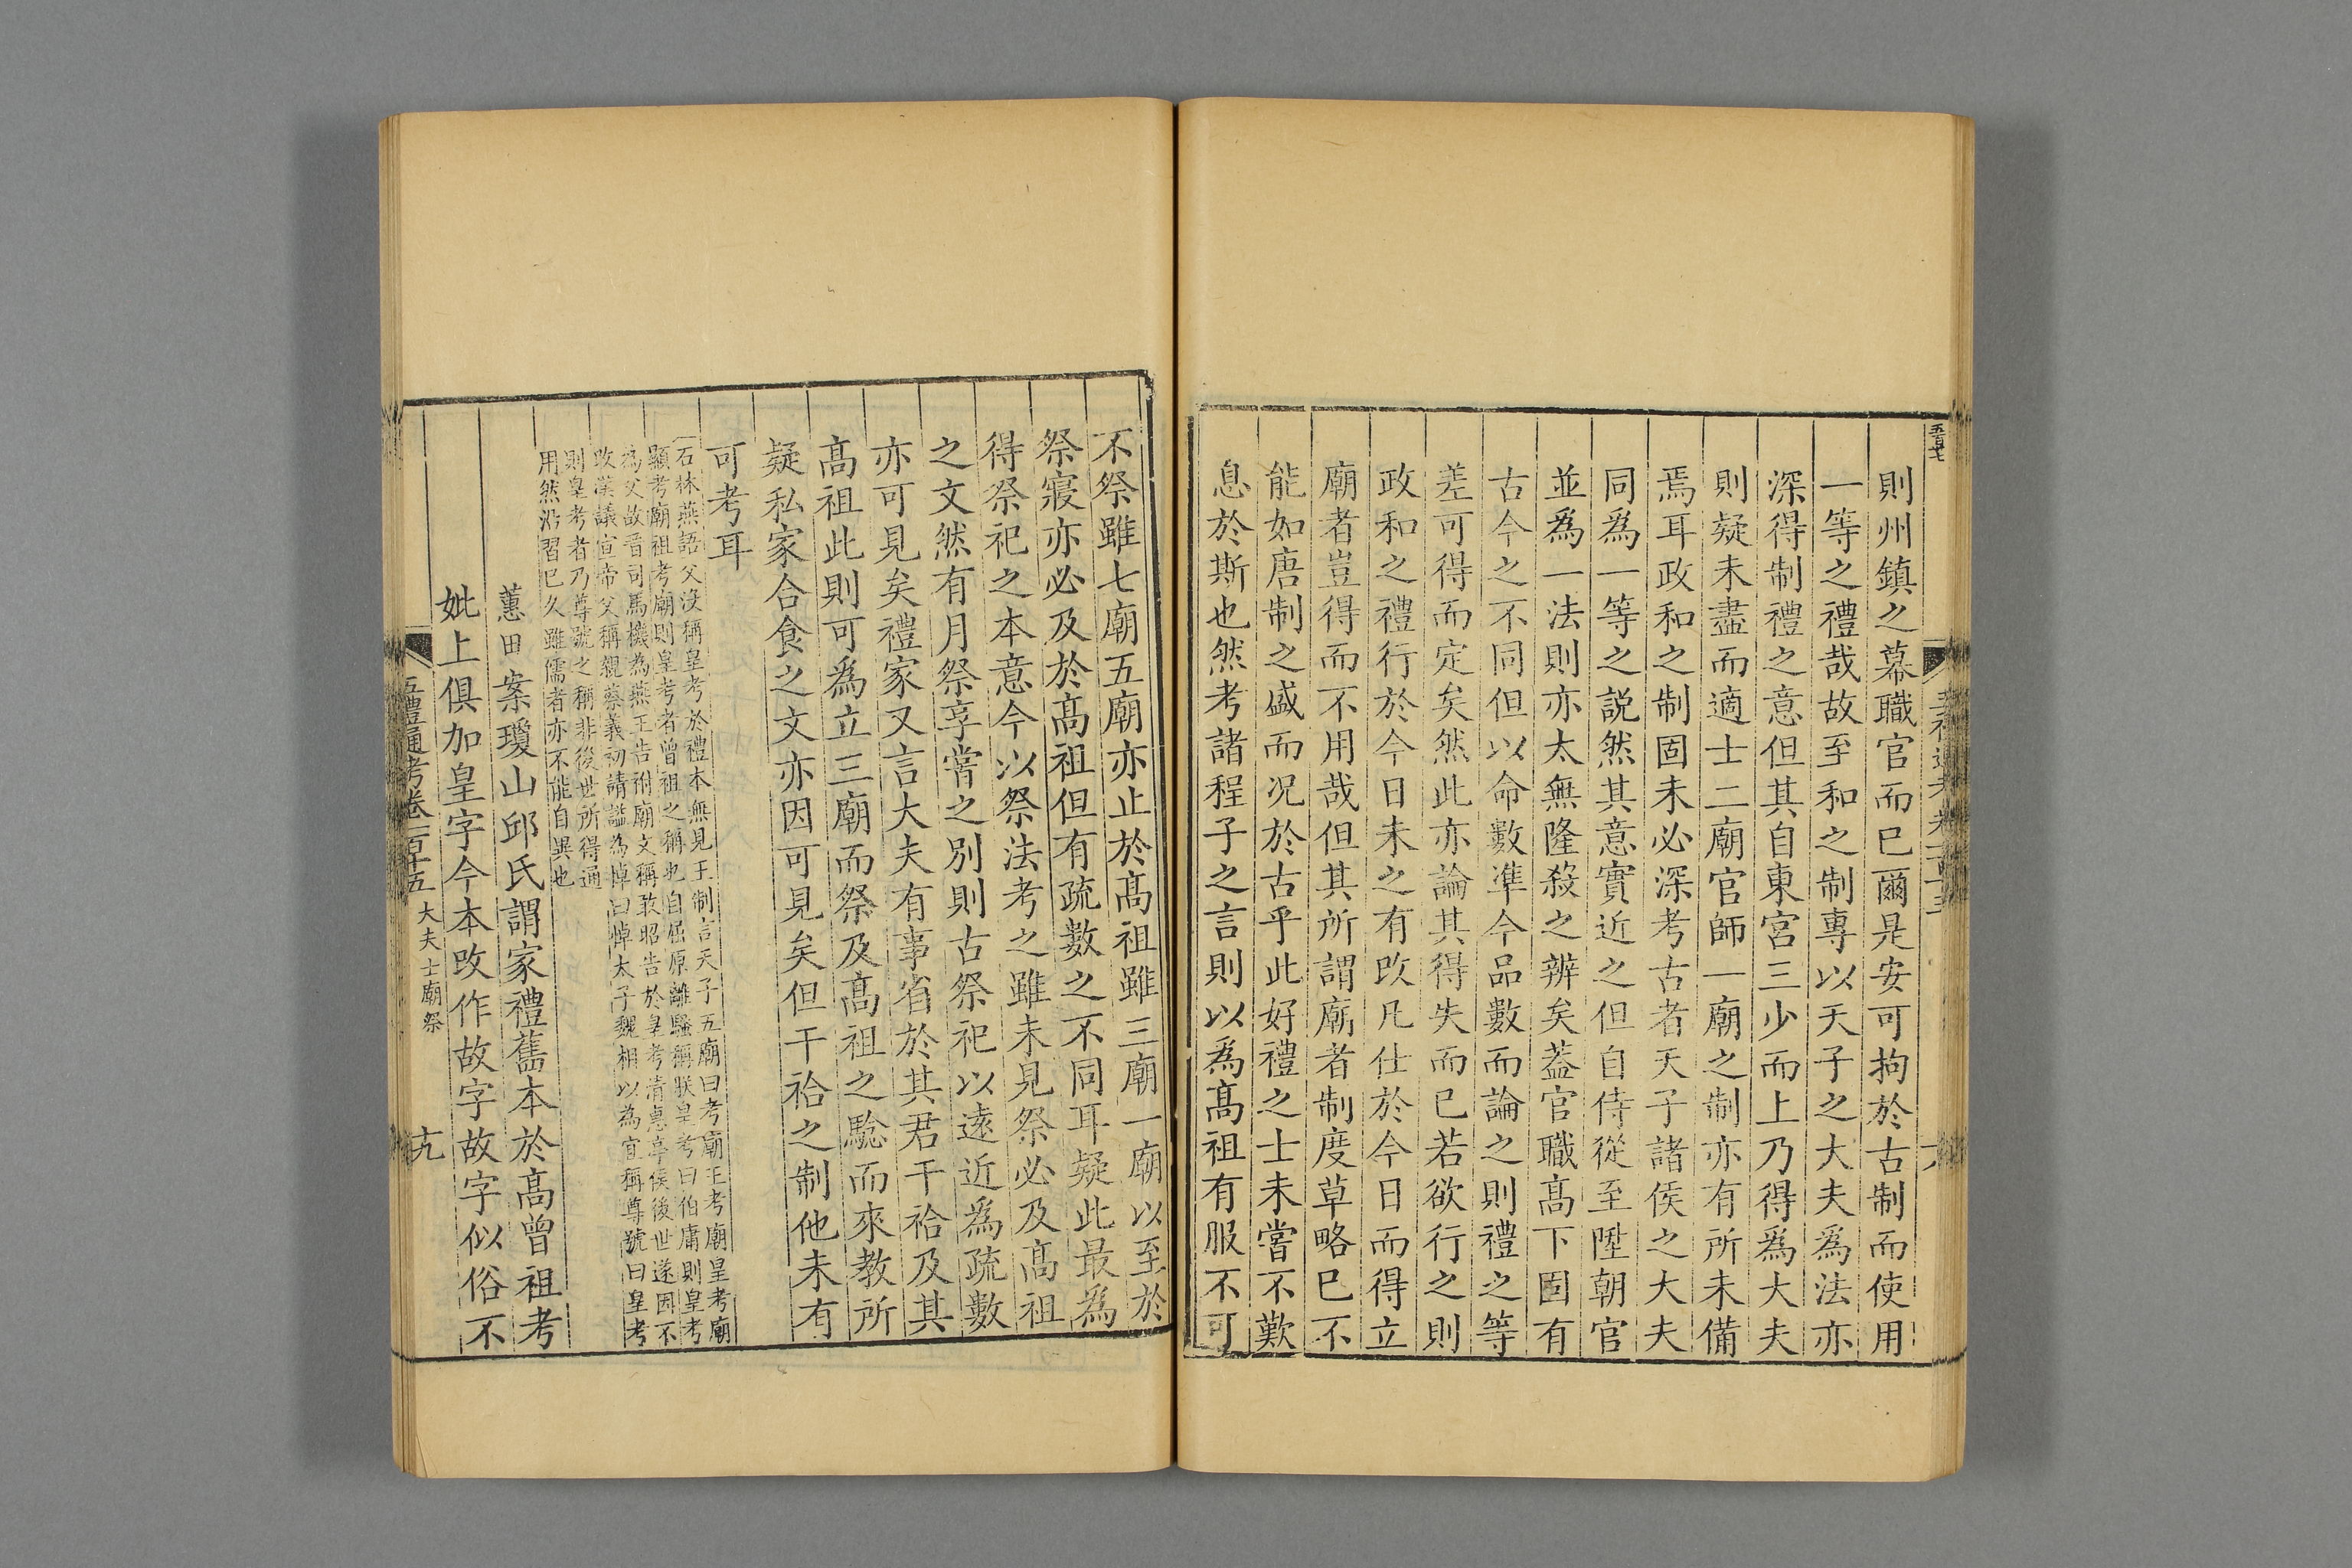 則州鎮之幕職官而已爾是安可拘於古制而使用
一等之禮哉故至和之制專以天子之大夫爲法亦
深得制禮之意但其自東宮三少而上乃得爲大夫
則疑未盡而適士二廟官師一廟之制亦有所未備
焉耳政和之制固未必深考古者天子諸侯之大夫
同爲一等之説然其意實近之但自侍從至陞朝官
並爲一法則亦太無隆殺之辨矣葢官職髙下固有
古今之不同但以命數凖今品數而論之則禮之等
差可得而定矣然此亦論其得失而已若欲行之則
政和之禮行於今日未之有改凡仕於今日而得立
廟者豈得而不用哉但其所謂廟者制度草略已不
能如唐制之盛而况於古乎此好禮之士未嘗不歎
息於斯也然考諸程子之言則以爲髙祖有服不可
不祭雖七廟五廟亦止於髙祖雖三廟一廟以至於
祭寢亦必及於髙祖但有疏數之不同耳疑此最爲
得祭祀之本意今以祭法考之雖未見祭必及髙祖
之文然有月祭享嘗之別則古祭祀以遠近爲疏數
亦可見矣禮家又言大夫有事省於其君干祫及其
髙祖此則可爲立三廟而祭及髙祖之騐而來教所
疑私家合食之文亦因可見矣但干祫之制他未有
可考耳
石林燕語父沒稱皇考於禮本無見王制言天子五廟曰考廟王考廟皇考廟
顯考廟祖考廟則皇考者曾祖之稱也自屈原離騷稱朕皇考曰伯庸則皇考
為父故晋司馬機為燕王告祔廟文稱敢昭告於皇考清惠亭侯後世遂因不
改漢議宣帝父稱親蔡義初請諡為悼曰悼太子魏相以為宜稱尊號曰皇考
則皇考者乃尊號之稱非後世所得通
用然沿習已久雖儒者亦不能自異也
蕙田案瓊山邱氏謂家禮舊本於髙曾祖考
妣上俱加皇字今本改作故字故字似俗不
五禮通考卷一百十五 大夫士廟祭 十九